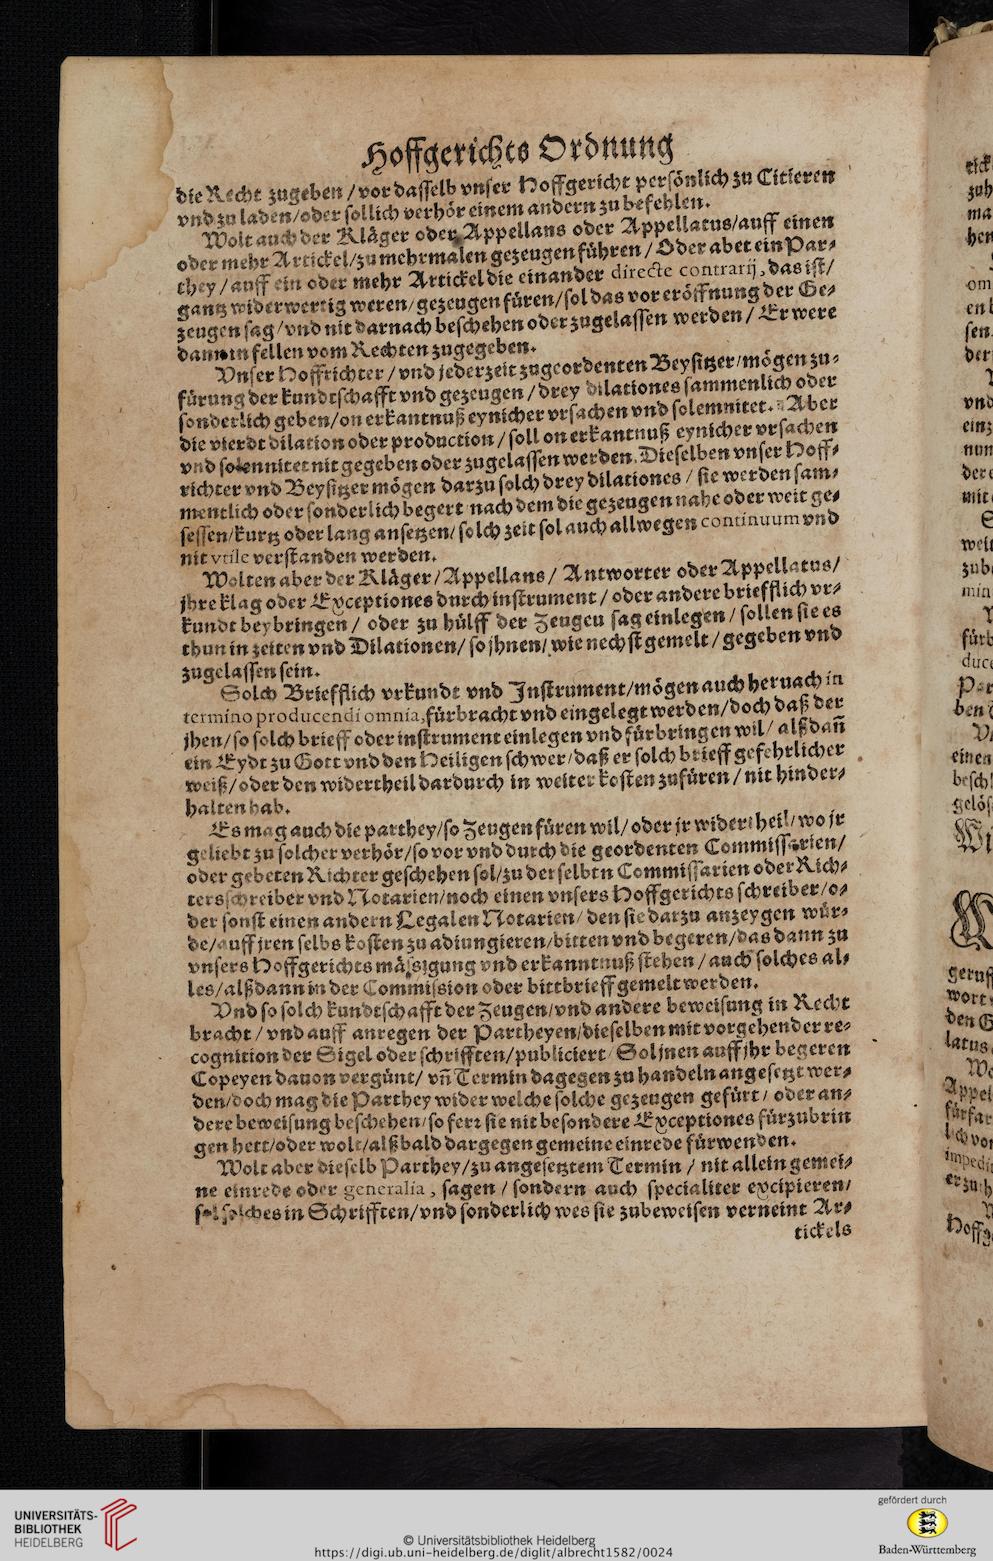 Hoffgerichts Ordnung
die Recht zugeben / vor dasselb vnser Hoffgericht persönlich zu Citieren
vnd zu laden/oder sollich verhör einem andern zu befehlen.
Wolt auch der Kläger oder Appellans oder Appellatus/auff einen
oder mehr Artickel/zu mehrmalen gezeugen führen / Oder abet ein Par⸗
they / auff ein oder mehr Artickel die einander directe contrarij, das ist/
gantz widerwertig weren/gezeugen füren/sol das vor eröffnung der Ge⸗
zeugen sag/vnd nit darnach beschehen oder zugelassen werden / Er were
dann in fellen vom Rechten zugegeben.
Vnser Hoffrichter / vnd jederzeit zugeordenten Beysitzer/mögen zu⸗
fürung der kundtschafft vnd gezeugen / drey dilationes sammenlich oder
sonderlich geben/on erkantnuß eynicher vrsachen vnd solemnitet. Aber
die vierdt dilation oder production / soll on erkantnuß eynicher vrsachen
vnd solennitet nit gegeben oder zugelassen werden. Dieselben vnser Hoff⸗
richter vnd Beysitzer mögen darzu solch drey dilationes / sie werden sam⸗
mentlich oder sonderlich begert nach dem die gezeugen nahe oder weit ge⸗
sessen/kurtz oder lang ansetzen/solch zeit sol auch allwegen continuum vnd
nit vtile verstanden werden.
Wolten aber der Kläger/Appellans/ Antworter oder Appellatus/
jhre klag oder Exceptiones durch instrument / oder andere briefflich vr⸗
kundt beybringen / oder zu hülff der Zeugeu sag einlegen / sollen sie es
thun in zeiten vnd Dilationen/ so jhnen/ wie nechst gemelt / gegeben vnd
zugelassen sein.
Solch Briefflich vrkundt vnd Instrument/mögen auch hernach in
termino producendi omnia, fürbracht vnd eingelegt werden/doch daß der
jhen/so solch brieff oder instrument einlegen vnd fürbringen wil/ alß dañ
ein Eydt zu Gott vnd den Heiligen schwer/daß er solch brieff gefehrlicher
weiß/oder den widertheil dardurch in weiter kosten zufüren / nit hinder⸗
halten hab.
Es mag auch die parthey/so Zeugen füren wil/ oder jr widertheil/ wo jr
geliebt zu solcher verhör/so vor vnd durch die geordenten Commissarien/
oder gebeten Richter geschehen sol/zu derselbtn Commissarien oder Rich⸗
tersschreiber vnd Notarien/noch einen vnsers Hoffgerichts schreiber/o⸗
der sonst einen andern Legalen Notarien/ den sie darzu anzeygen wür⸗
de/auff jren selbs kosten zu adiungieren/bitten vnd begeren/das dann zu
vnsers Hoffgerichts mässigung vnd erkanntnuß stehen / auch solches al⸗
les/alßdann in der Commission oder bittbrieff gemelt werden.
Vnd so solch kundtschafft der Zeugen/vnd andere beweisung in Recht
bracht / vnd auff anregen der Partheyen/dieselben mit vorgehender re⸗
cognition der Sigel oder schrifften/publiciert/ Sol jnen auff jhr begeren
Copeyen dauon vergünt/ vñ Termin dagegen zu handeln angesetzt wer⸗
den/doch mag die Parthey wider welche solche gezeugen gefürt / oder an⸗
dere beweisung beschehen/so ferr sie nit besondere Exceptiones fürzubrin
gen hett/oder wolt/alßbald dargegen gemeine einrede fürwenden.
Wolt aber dieselb Parthey/zu angesetztem Termin / nit allein gemei⸗
ne einrede oder generalia, sagen / sondern auch specialiter excipieren/
sol solches in Schrifften/vnd sonderlich wes sie zubeweisen verneint Ar⸗
tickels
UNIVERSITÄTS-
BIBLIOTHEK
HEIDELBERG
© Universitätsbibliothek Heidelberg
https://digi.ub.uni-heidelberg.de/diglit/albrecht1582/0024
gefördert durch
Baden-Württemberg